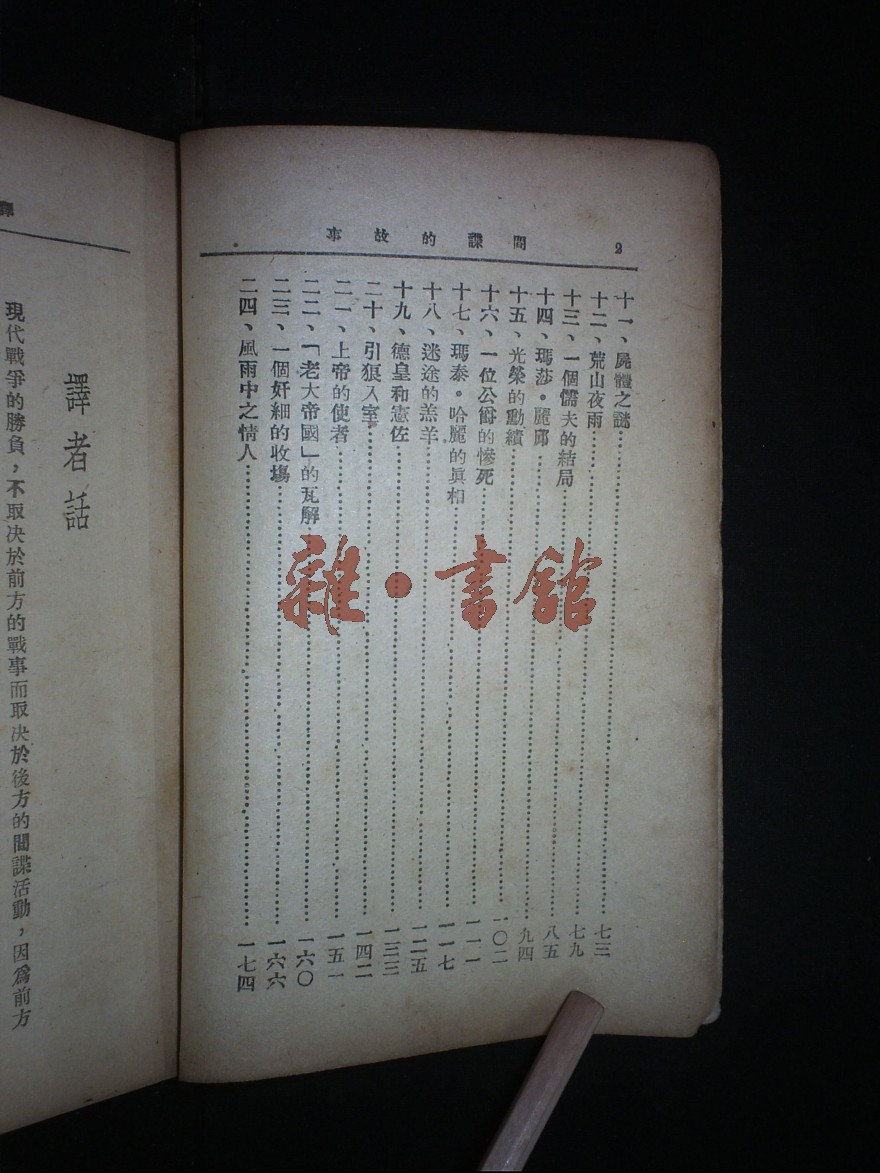 間諜的故事 2
十一、屍體之謎……七三
十二、荒山夜雨……七九
十三、一個儒夫的結局……八五
十四、瑪莎•麗邱……九四
十五、光榮的勳績……一〇二
十六、一位公爵的慘死……一一一
十七、瑪泰•哈麗的眞相……一一七
十八、迷途的羔羊……一二五
十九、德皇和憲佐……一三三
二十、引狼入室……一四二
二一、上帝的使者……一五一
二二、「老大帝國」的瓦解……一六〇
二三、一個奸細的收塲……一六六
二四、風雨中之情人……一七四
雜•書館
譯者話
現代戰爭的勝負，不取决於前方的戰事而取决於後方的間諜活動，因爲前方